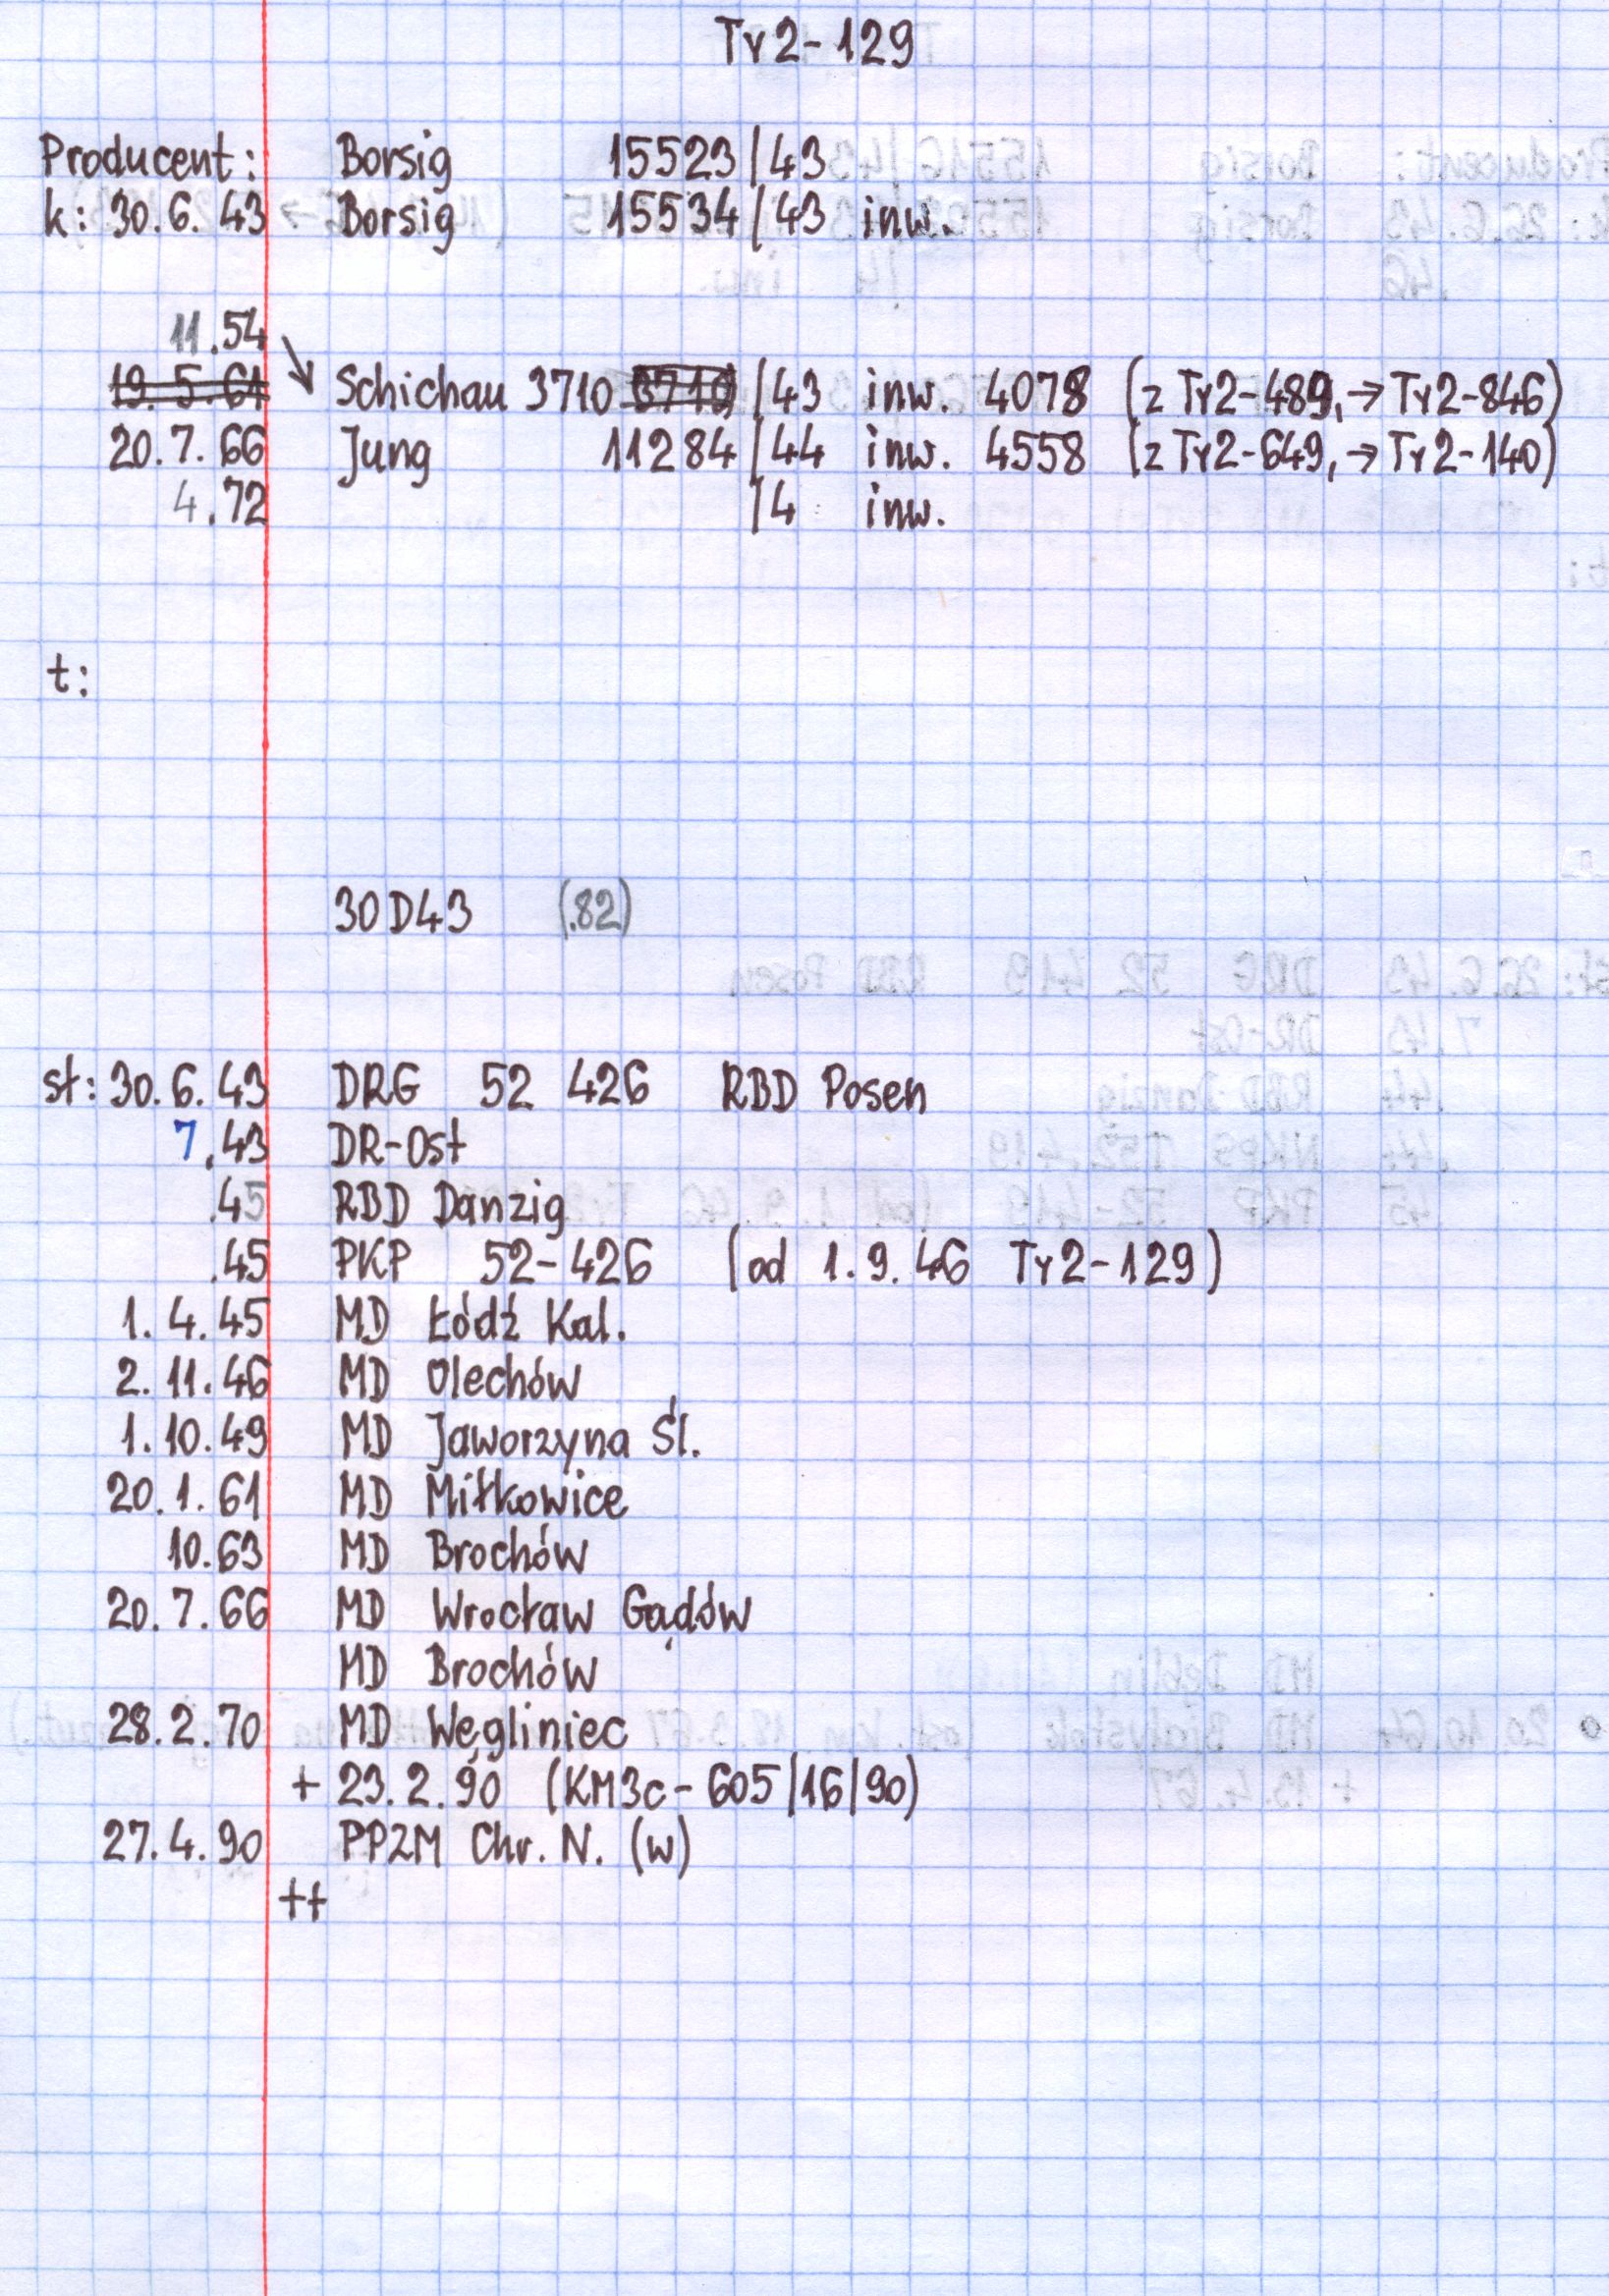 Ty2-129
Producent: Borsig 15523/43
k: 30.6.43 Borsig 15534/43 inw.
11.54
19.5.61 Schichau 3710 3710 /43 inw. 4078 (z Ty2-489, → Ty2-846)
20.7.66 Jung 11284/44 inw. 4558 (z Ty2-649, → Ty2-140)
4.72 /4 inw.
t:
30D43 (.82)
st: 30.6.43 DRG 52 426 RBD Posen
7.43 DR-Ost
.45 RBD Danzig
.45 PKP 52-426 (od 1.9.46 Ty2-129)
1.4.45 MD Łódź Kal.
2.11.46 MD Olechów
1.10.49 MD Jaworzyna Śl.
20.1.61 MD Miłkowice
10.63 MD Brochów
20.7.66 MD Wrocław Gądów
MD Brochów
28.2.70 MD Węgliniec
+ 23.2.90 (KM3c-605/16/90)
27.4.90 PPZM Chr. N. (w)
++